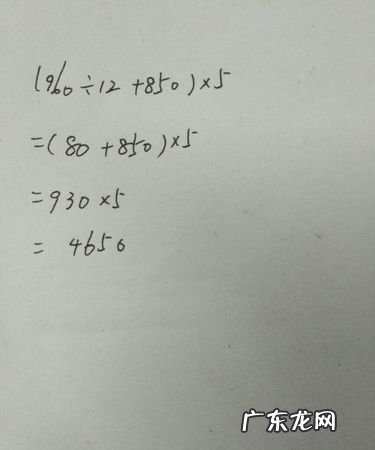 (960÷12+850)×5
=(80+850)×5
=930×5
= 4650
广东龙网